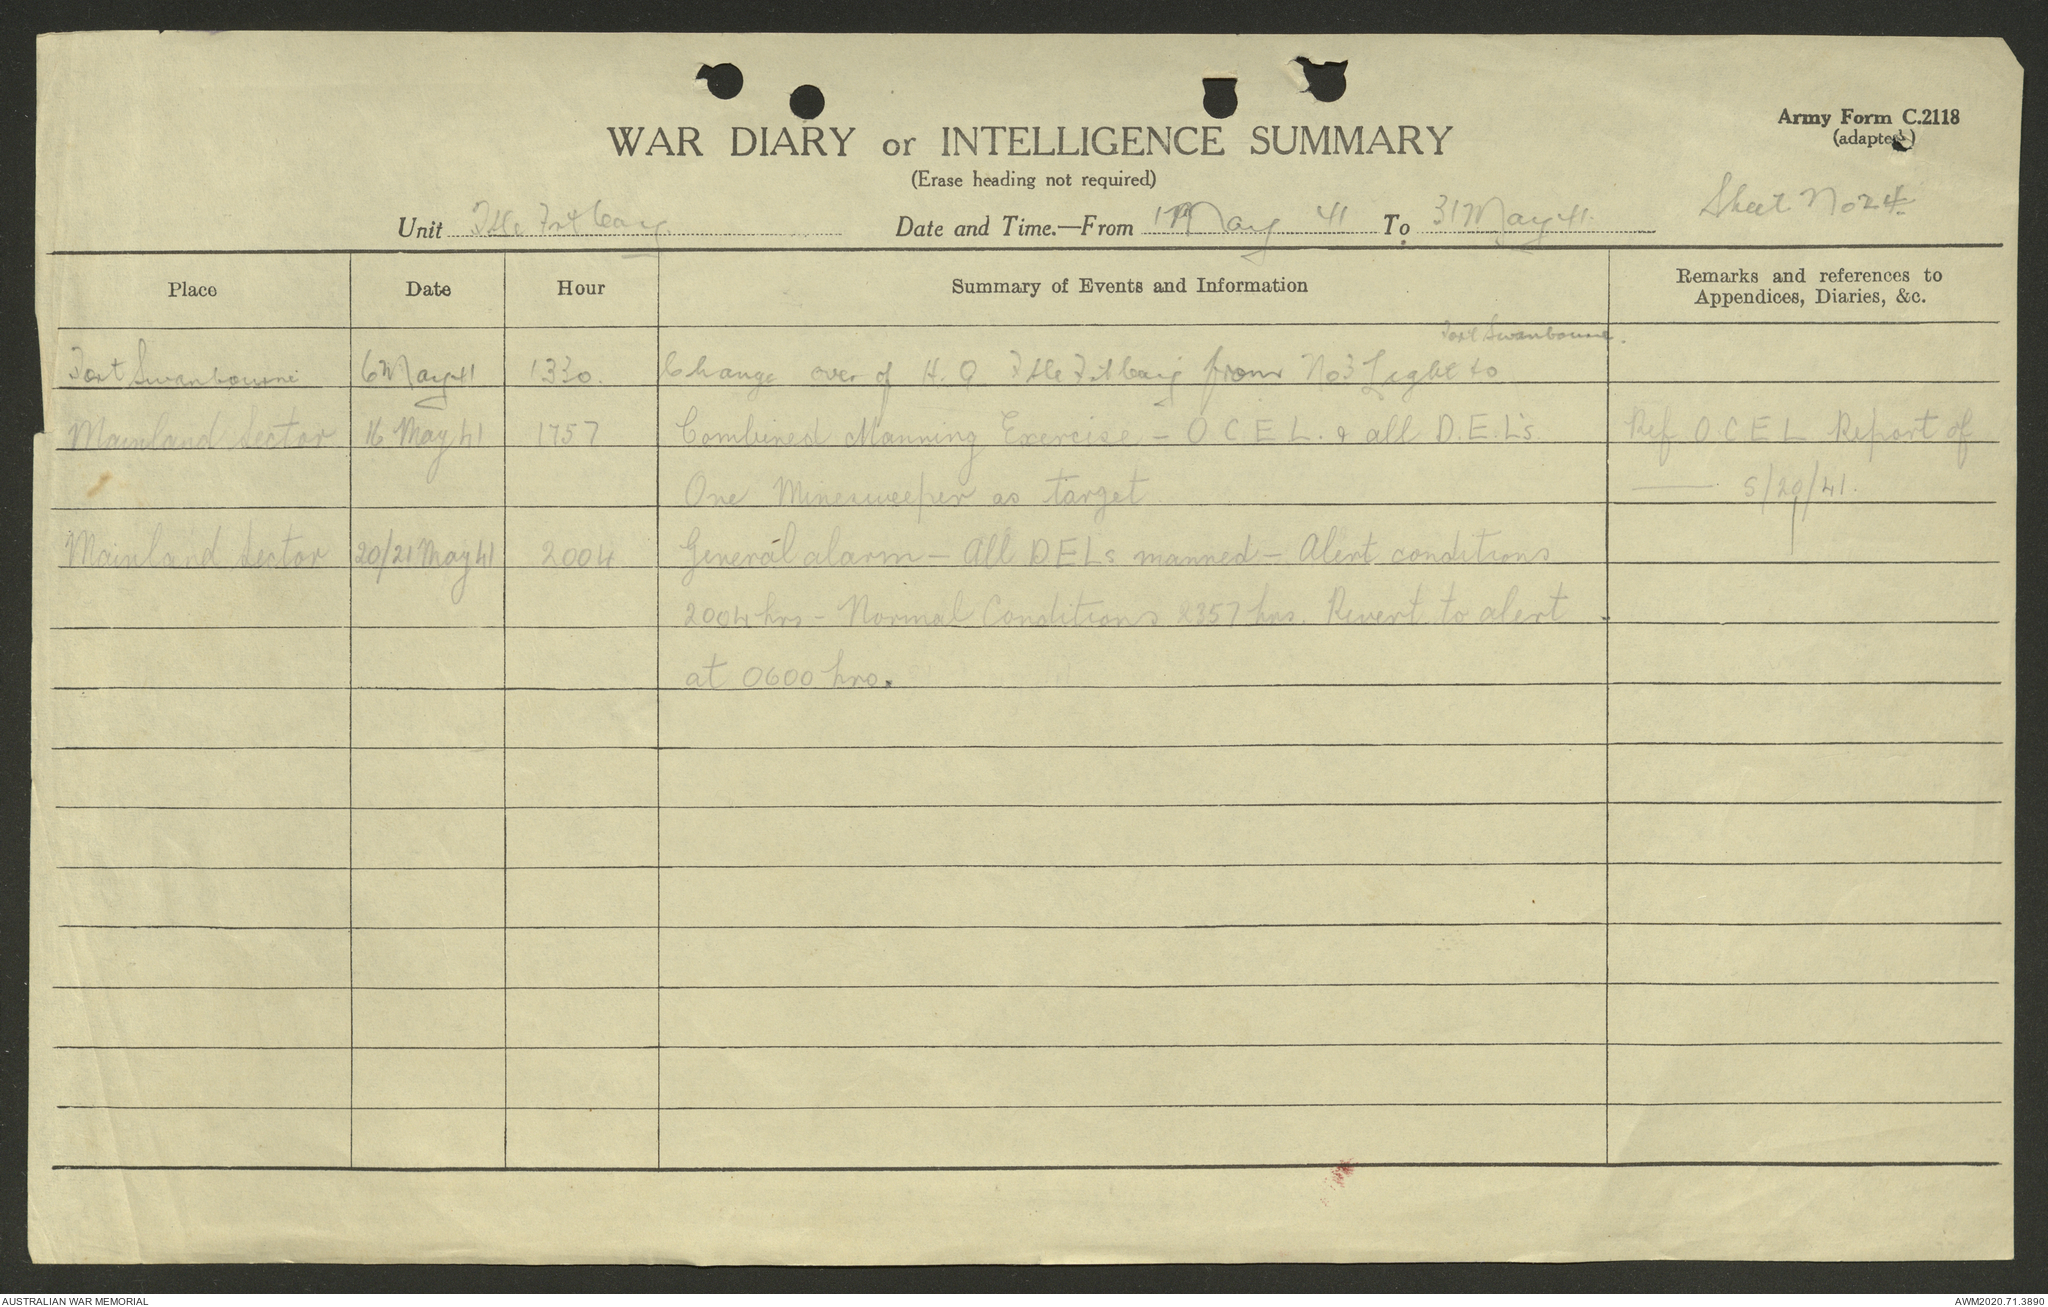 Army Form C.2118
(adapted)
WAR DIARY or INTELLIGENCE SUMMARY
(Erase heading not required)
Sheet No 24
Unit F'tle Frt Coy. Date and Time.—From 1 May 41 To 31 May 41.
Place Date Hour Summary of Events and Information Remarks and references to
Appendices, Diaries, &c.
Fort Swanbourne.
Fort Swanbourne 6 May 41 1330. Change over of H.Q F'tle Frt Coy from No3 Light to
Mainland Sector 16 May 41 1757 Combined Manning Exercise - O.C.E.L. & all D.E.L's Ref O.C.E.L Report of
One Minesweeper as target 5/20/41.
Mainland Sector 20/21 May 41 2004 General alarm - All DELs manned - Alert conditions
2004 hrs - Normal Conditions 2357 hrs. Revert to alert
at 0600 hrs.
AUSTRALIAN WAR MEMORIAL
AWM2020.71.3890